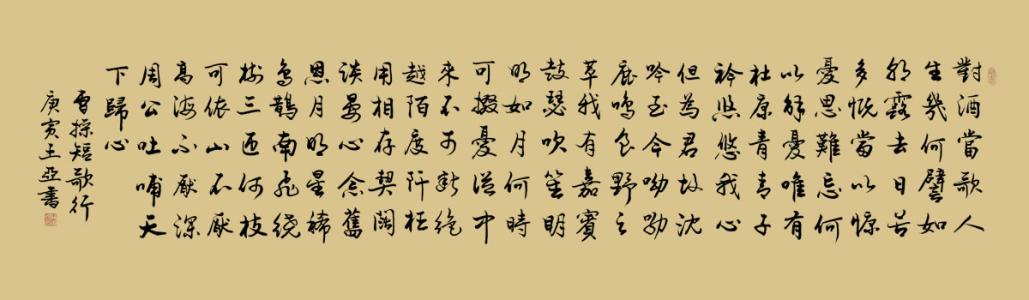 對酒當歌人
生幾何譬如
朝露去日苦
多慨當以慷
憂思難忘何
以解憂唯有
杜康青青子
衿悠悠我心
但為君故沈
吟至今呦呦
鹿鳴食野之
苹我有嘉賓
鼓瑟吹笙明
明如月何時
可掇憂從中
來不可斷絕
越陌度阡枉
用相存契闊
談宴心念舊
恩月明星稀
烏鵲南飛繞
樹三匝何枝
可依山不厭
高海不厭深
周公吐哺天
下歸心
曹操短歌行
庚寅王亞書